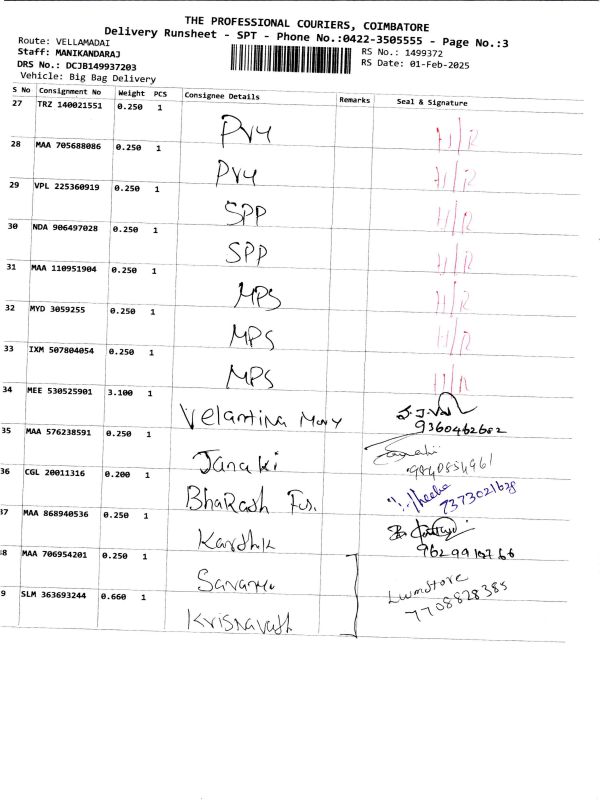 THE PROFESSIONAL COURIERS, COIMBATORE
Delivery Runsheet - SPT - Phone No.:0422-3505555 - Page No.:3
Route: VELLAMADAI
Staff: MANIKANDARAJ
RS No.: 1499372
DRS No.: DCJB149937203
RS Date: 01-Feb-2025
Vehicle: Big Bag Delivery
S No Consignment No Weight PCS Consignee Details Remarks Seal & Signature
27 TRZ 140021551 0.250 1 PVY H/R
28 MAA 705688086 0.250 1 PVY H/R
29 VPL 225360919 0.250 1 SPP H/R
30 NDA 906497028 0.250 1 SPP H/R
31 MAA 110951904 0.250 1 MPS H/R
32 MYD 3059255 0.250 1 MPS H/R
33 IXM 507804054 0.250 1 MPS H/R
34 MEE 530525901 3.100 1 Velantina Mary
9360462682
35 MAA 576238591 0.250 1 Janaki
9840854961
36 CGL 20011316 0.200 1 BhaRash Fus.
7373021638
37 MAA 868940536 0.250 1 Karthik
38 MAA 706954201 0.250 1
7708828385
9 SLM 363693244 0.660 1